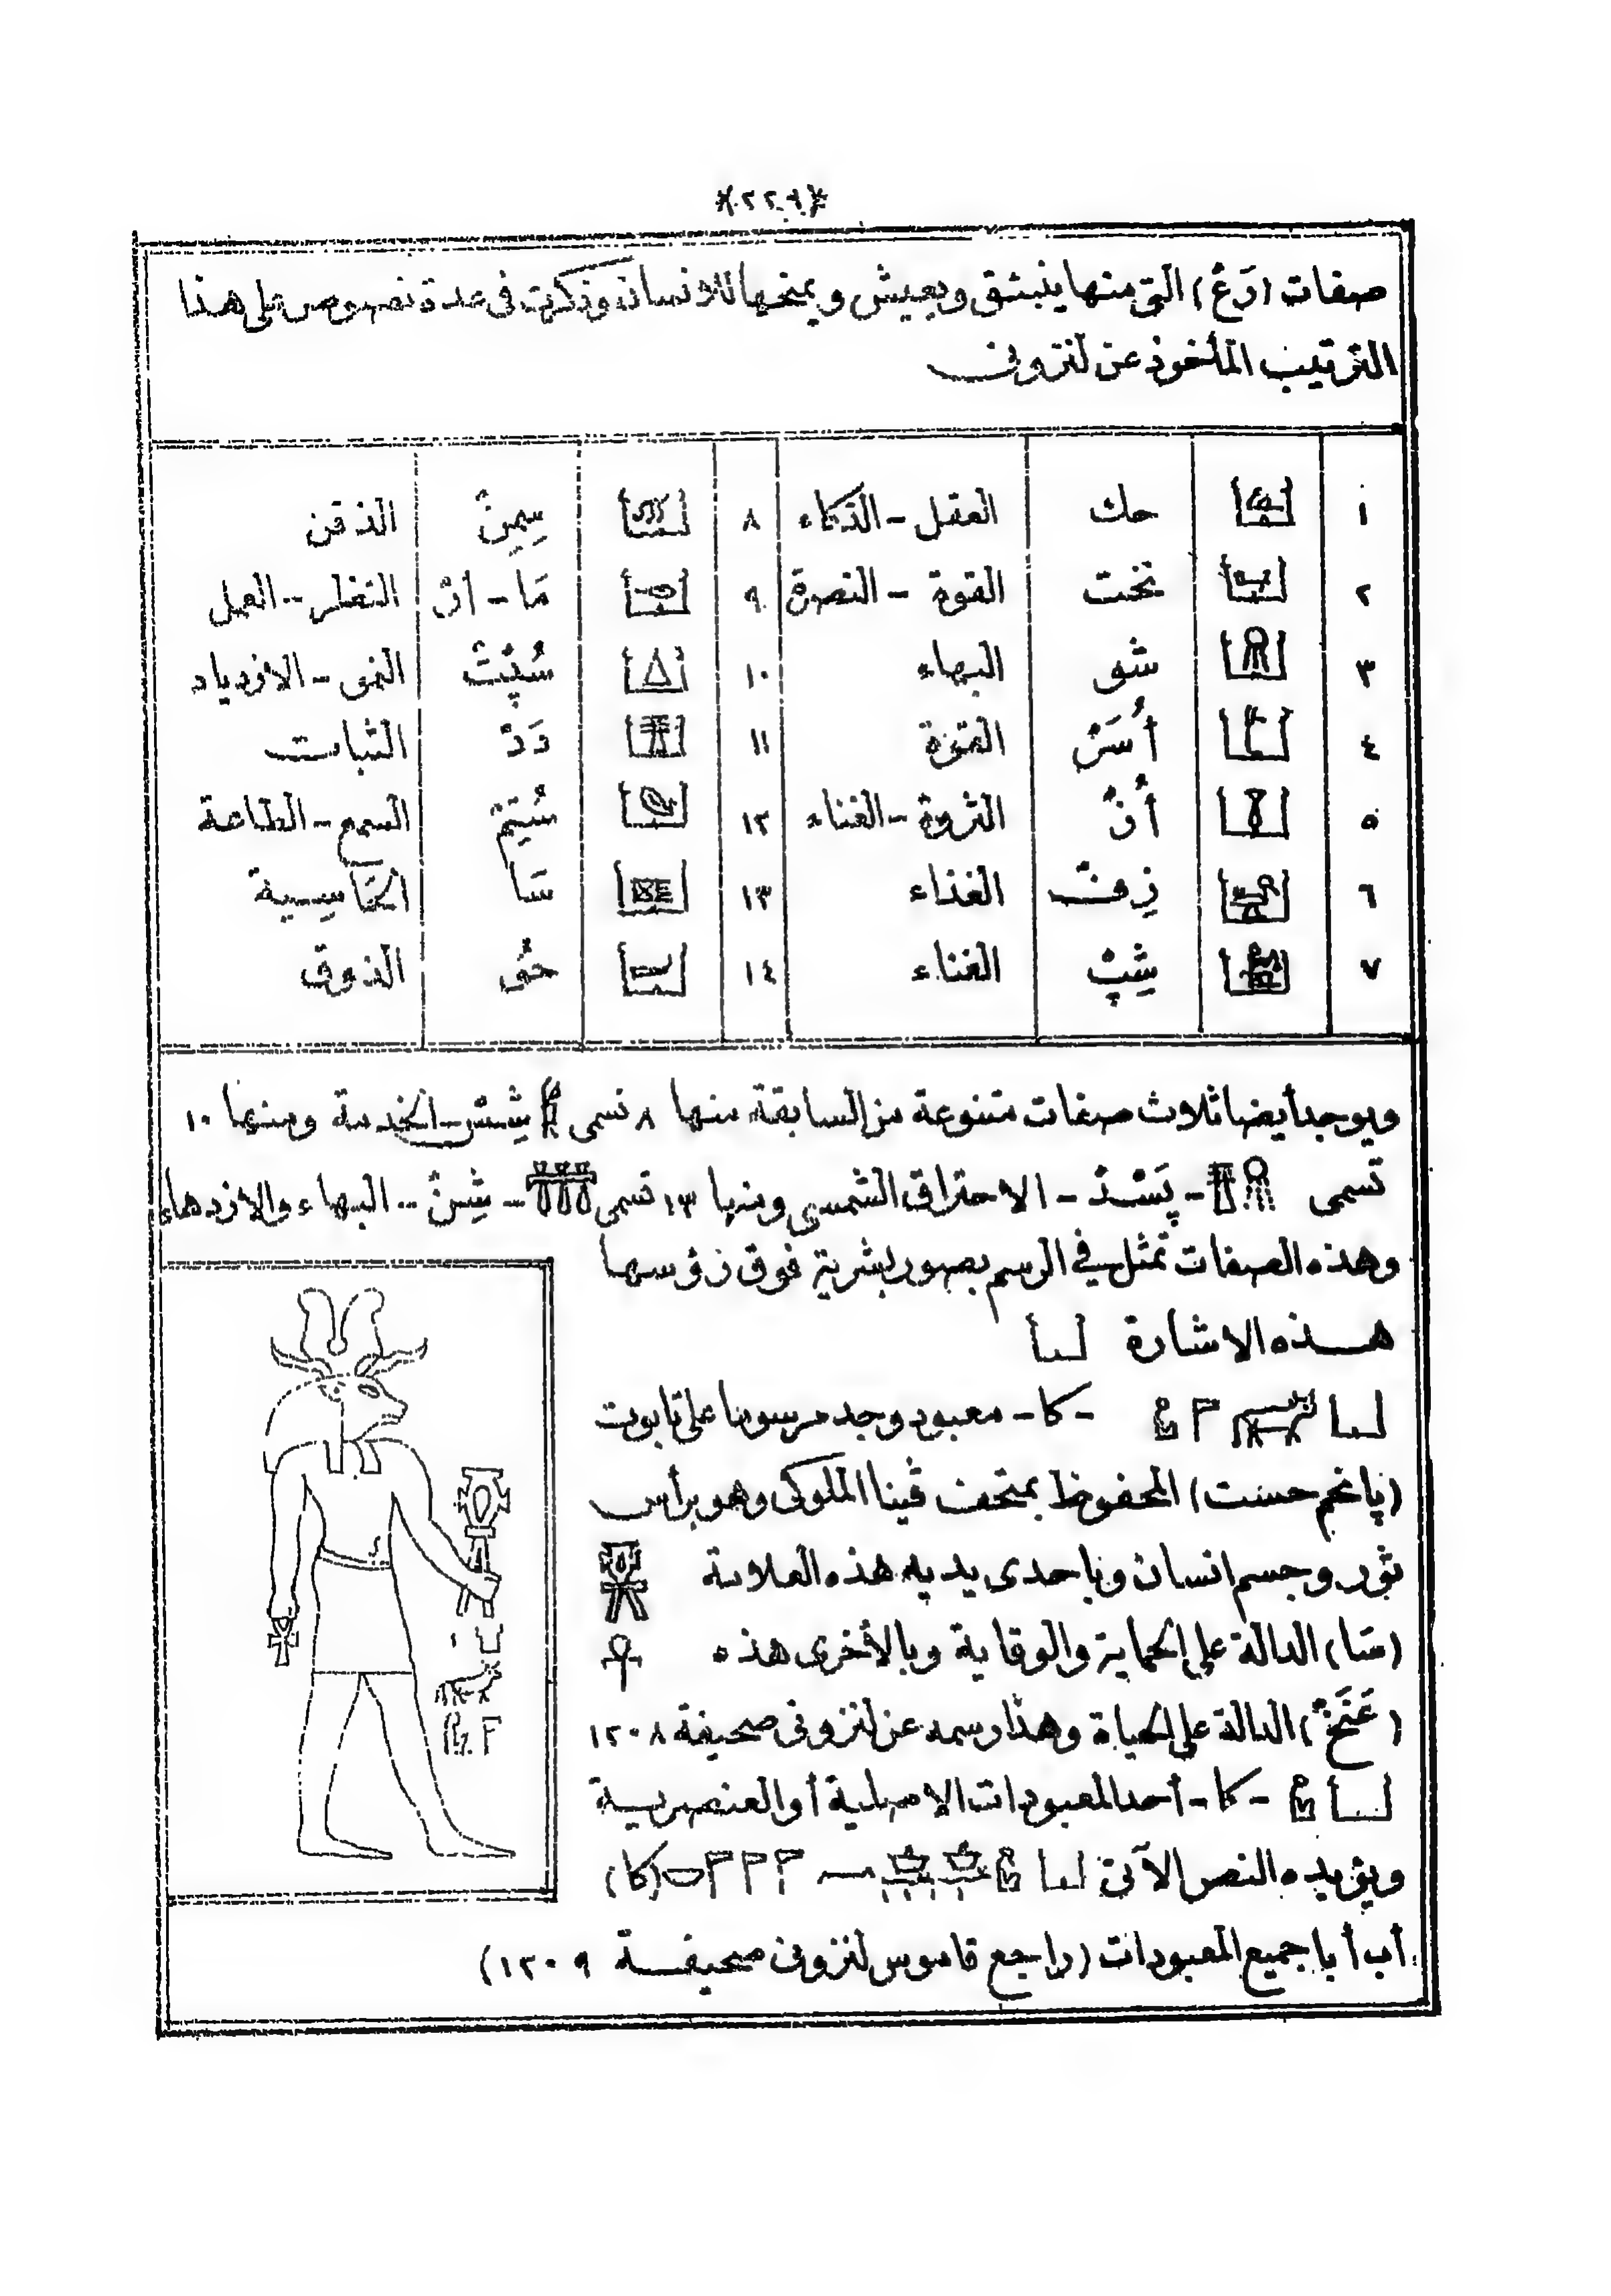 صفات (رَعْ) التى منها ينبثق ويعيش ويمنحها للانسان وذكرت فى عدة نصوص على هذا
الترتيب المأخوذ عن لنزونى
١ حك العقل - الذكاء ٨ سِمِنْ الذقن
٢ نخت القوة - النصرة ٩ مَا - ان النظر - العمل
٣ شو البهاء ١٠ سُپِتْ النمو - الازدياد
٤ أُسَرْ القوة ١١ دَدْ الثبات
٥ أُزْ الثروة - الغناء ١٢ سُتِمْ السمع - الطاعة
٦ زِفْ الغذاء ١٣ سَا الحَاسِية
٧ شِپْ الغناء ١٤ حُو الذوق
ويوجد أيضا ثلاث صفات متنوعة من السابقة منها ٨ تسمى شِسْ - الخدمة ومنها ١٠
تسمى - پَسْدْ - الاحتراق الشمسى ومنها ١٣ تسمى - شِنْ - البهاء والازدهاء
وهذه الصفات تمثل فى الرسم بصور بشرية فوق رؤسها
هذه الاشارة
- كا - معبود وجد مرسوما على تابوت
(پانخم حست) المحفوظ بمتحف ڤينا الملوكى وهو برأس
ثور وجسم انسان وباحدى يديه هذه العلامة
(سَا) الدالة على الحماية والوقاية وبالأخرى هذه
(عَنَخْ) الدالة على الحياة وهذا رسمه عن لنزونى صحيفة ١٢٠٨
- كا - أحد المعبودات الاصلية أو العنصرية
ويؤيده النص الآتى (كا)
أب أبا جميع المعبودات (راجع قاموس لنزونى صحيفة ١٢٠٩)